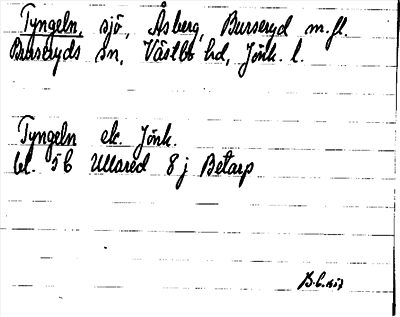 Tyngeln, sjö, Åsberg, Burseryd m.fl.
Burseryds sn, Västbo hd, Jönk. l.
Tyngeln ek. Jönk.
bl. 5b Ullared 8 j Betarp
B.E. 1957